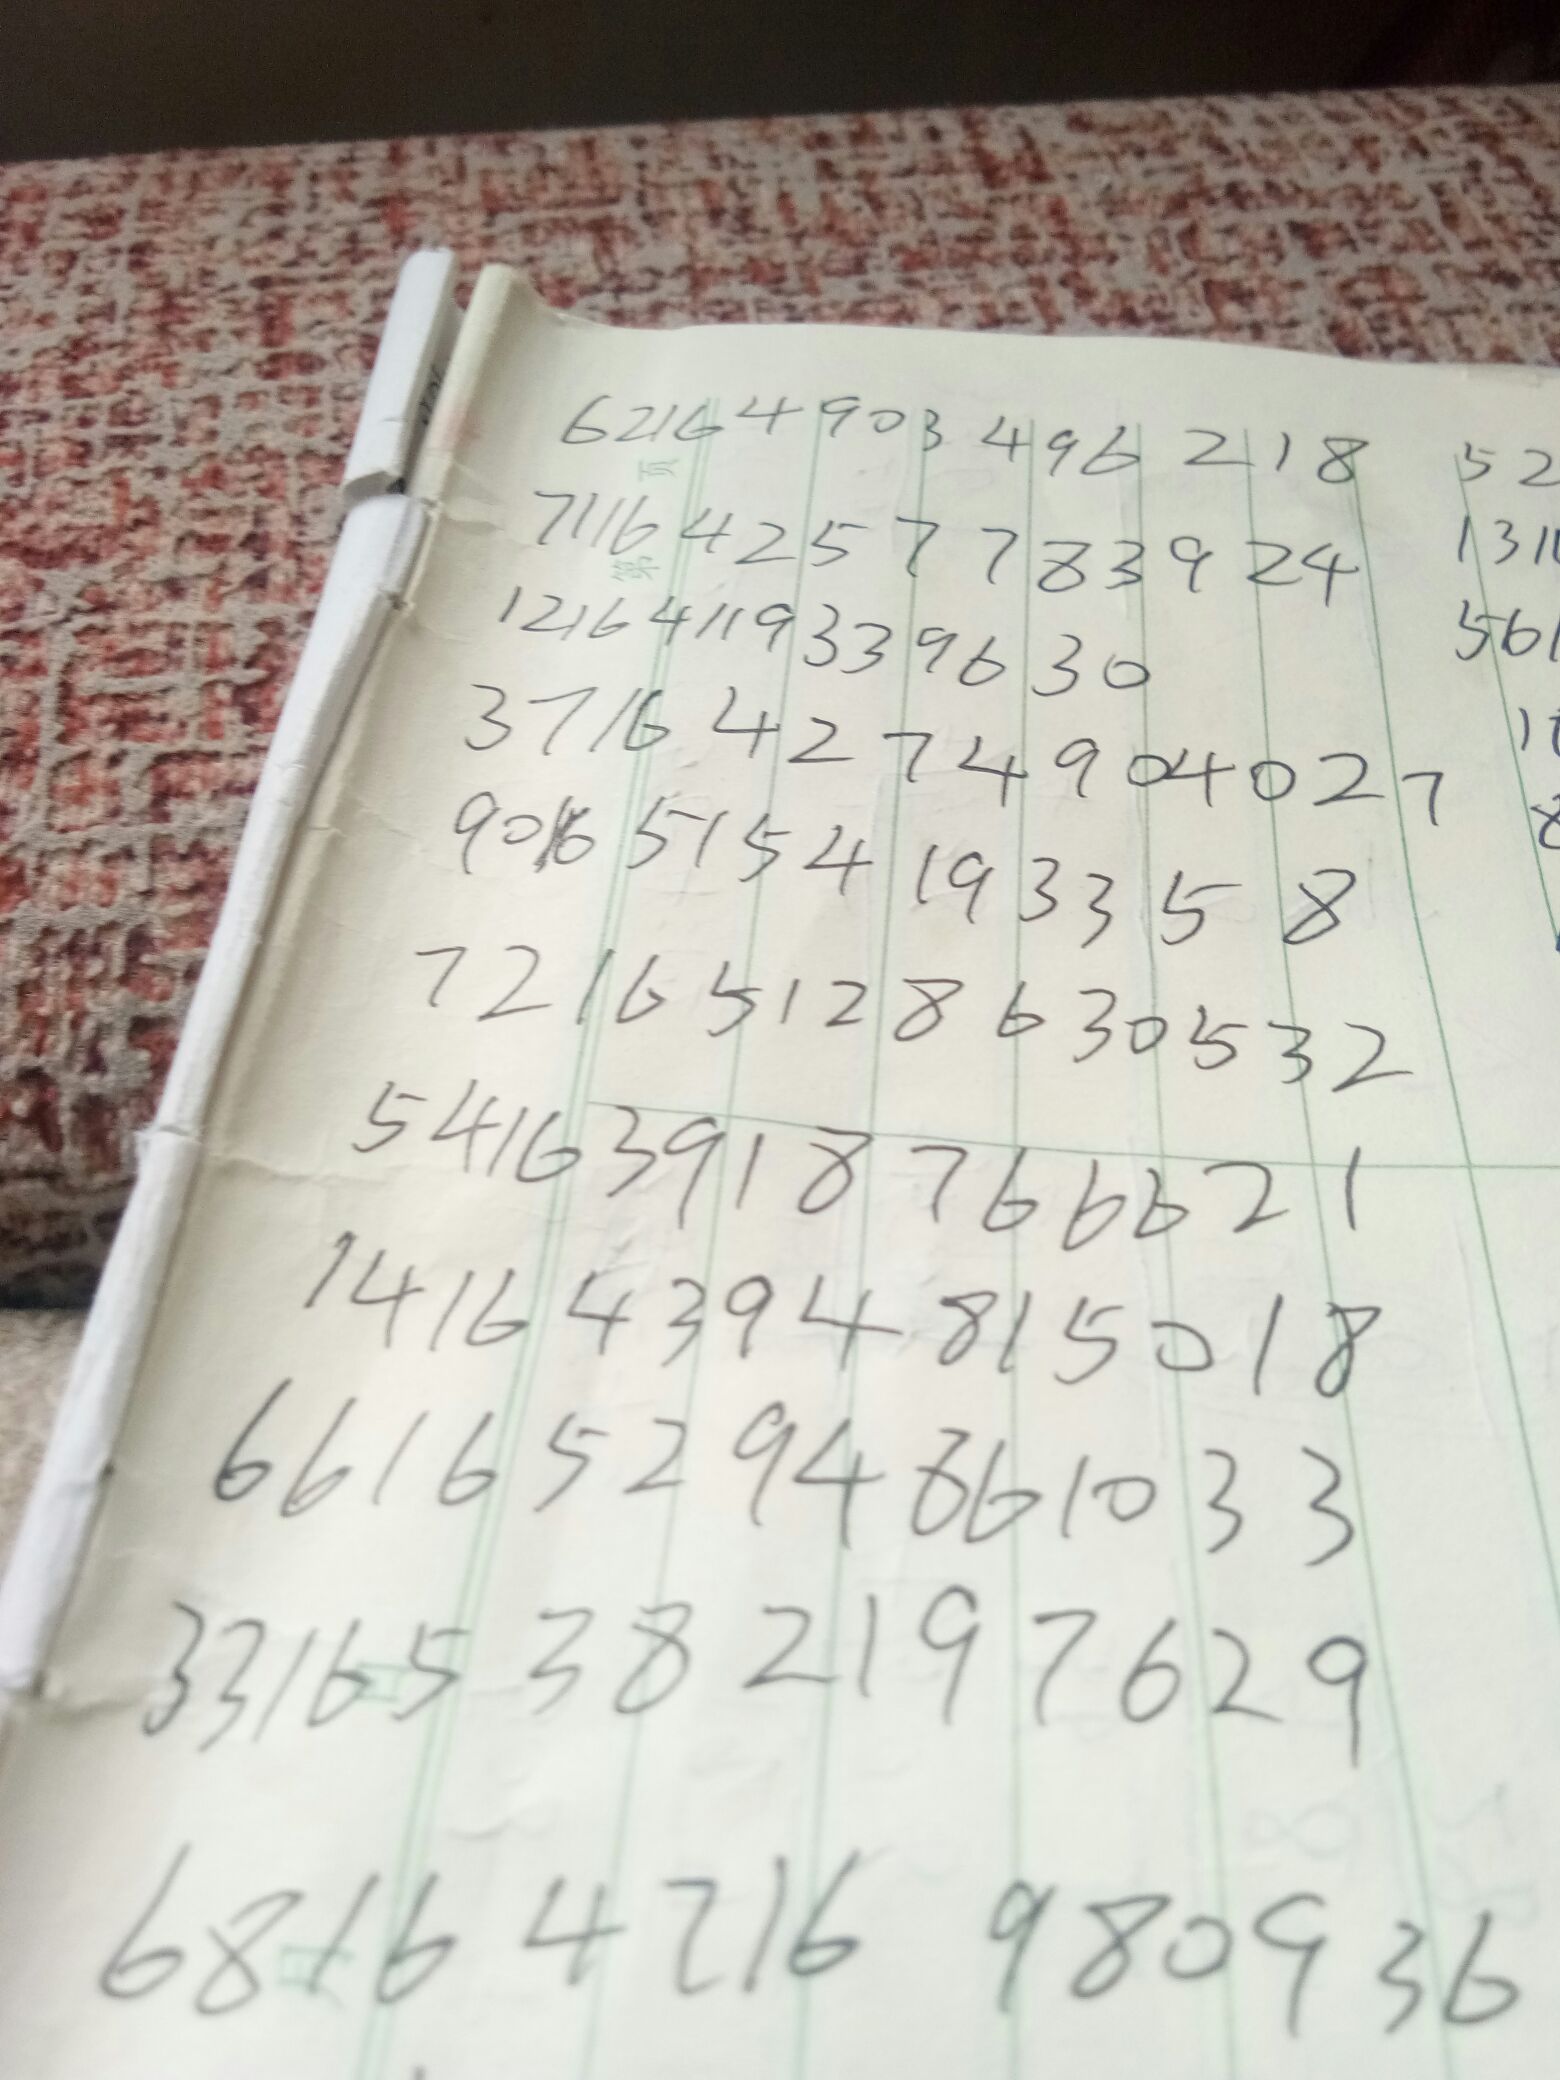 62164903496218 52
71164257783924 131
12164119339630 561
37164274904027
90165154193358
721651286305 32
54163918766621
14164394815018
66165294861033
33165382197629
68164216980936